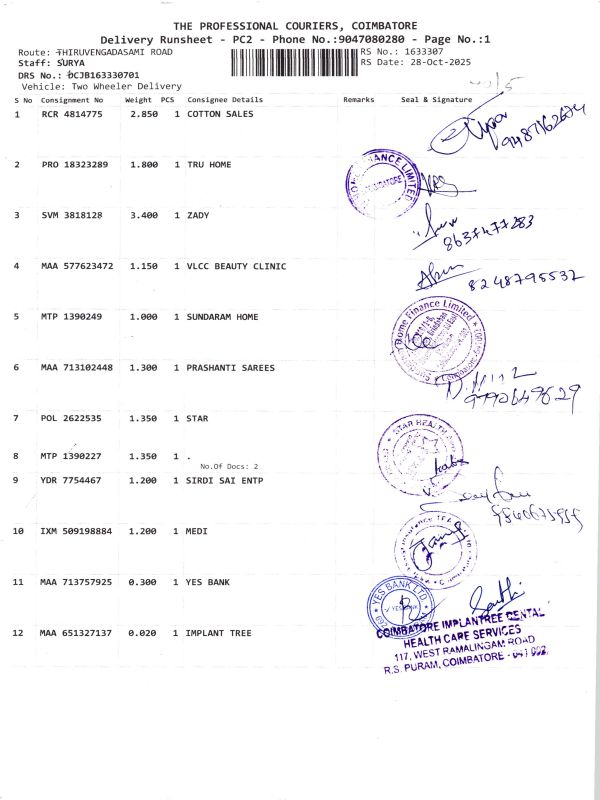 THE PROFESSIONAL COURIERS, COIMBATORE
Delivery Runsheet - PC2 - Phone No.:9047080280 - Page No.:1
Route: THIRUVENGADASAMI ROAD
RS No.: 1633307
Staff: SURYA
RS Date: 28-Oct-2025
DRS No.: DCJB163330701
Vehicle: Two Wheeler Delivery
S No Consignment No Weight PCS Consignee Details Remarks Seal & Signature
1 RCR 4814775 2.850 1 COTTON SALES
9487162674
2 PRO 18323289 1.800 1 TRU HOME
FINANCE LIMITED
COIMBATORE
3 SVM 3818128 3.400 1 ZADY
8637477283
4 MAA 577623472 1.150 1 VLCC BEAUTY CLINIC
8248795532
5 MTP 1390249 1.000 1 SUNDARAM HOME
Home Finance Limited
6 MAA 713102448 1.300 1 PRASHANTI SAREES
7 POL 2622535 1.350 1 STAR
STAR HEALTH
8 MTP 1390227 1.350 1 .
No.Of Docs: 2
9 YDR 7754467 1.200 1 SIRDI SAI ENTP
10 IXM 509198884 1.200 1 MEDI
11 MAA 713757925 0.300 1 YES BANK
YES BANK LTD
YES BANK
12 MAA 651327137 0.020 1 IMPLANT TREE
COIMBATORE IMPLANTREE DENTAL
HEALTH CARE SERVICES
117, WEST RAMALINGAM ROAD
R.S. PURAM, COIMBATORE - 641 002.